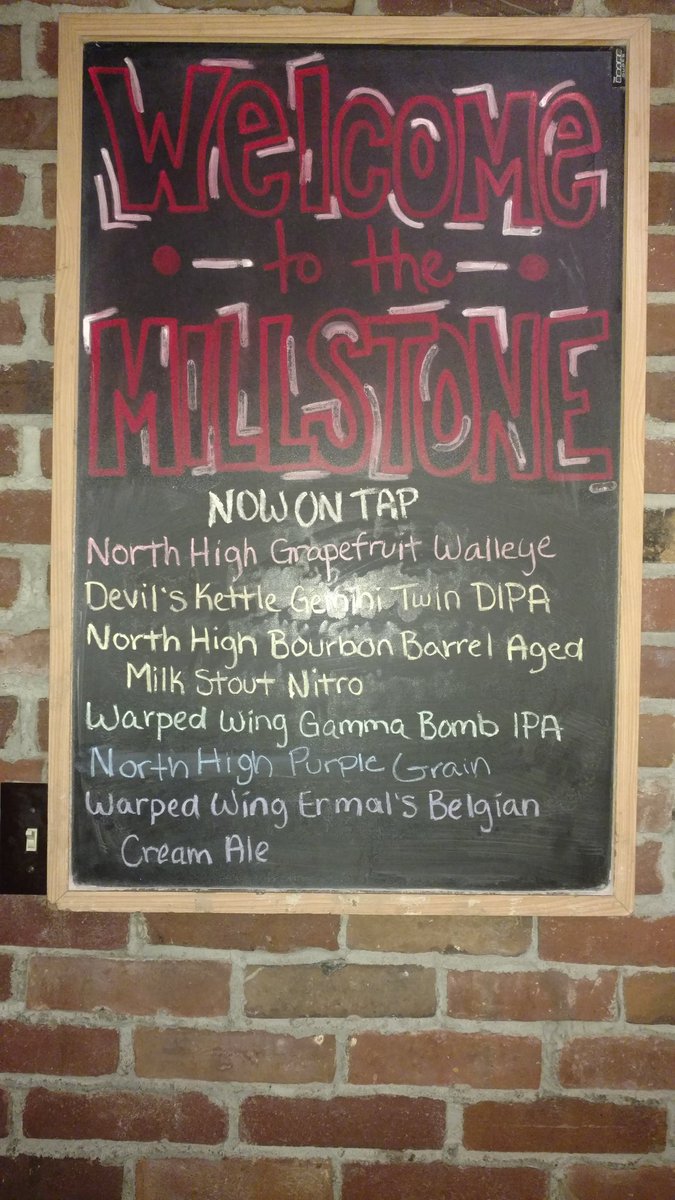 Welcome
to the
MILLSTONE
NOW ON TAP
North High Grapefruit Walleye
Devil's Kettle Gemini Twin DIPA
North High Bourbon Barrel Aged
Milk Stout Nitro
Warped Wing Gamma Bomb IPA
North High Purple Grain
Warped Wing Ermal's Belgian
Cream Ale